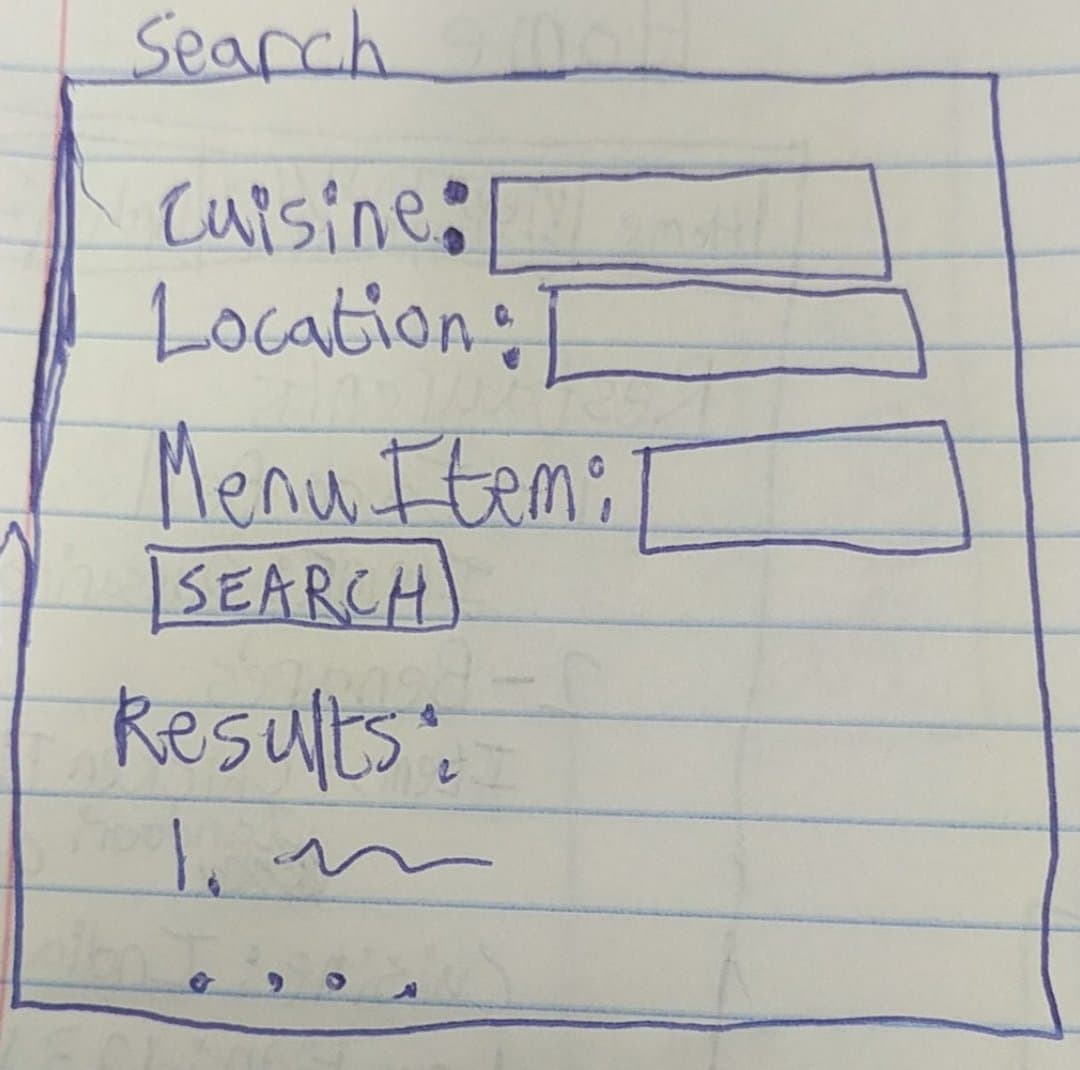 Search
Cuisine:
Location:
Menu Item:
SEARCH
Results:
1.
. . . .